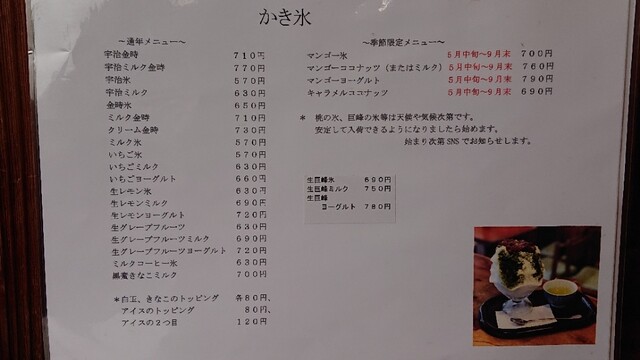 かき氷
～通年メニュー～
宇治金時 710円
宇治ミルク金時 770円
宇治氷 570円
宇治ミルク 630円
金時氷 650円
ミルク金時 710円
クリーム金時 730円
ミルク氷 570円
いちご氷 570円
いちごミルク 630円
いちごヨーグルト 660円
生レモン氷 630円
生レモンミルク 690円
生レモンヨーグルト 720円
生グレープフルーツ 630円
生グレープフルーツミルク 690円
生グレープフルーツヨーグルト 720円
ミルクコーヒー氷 630円
黒蜜きなこミルク 700円
＊白玉、きなこのトッピング 各80円、
アイスのトッピング 80円、
アイスの2つ目 120円
～季節限定メニュー～
マンゴー氷 5月中旬～9月末 700円
マンゴーココナッツ（またはミルク） 5月中旬～9月末 760円
マンゴーヨーグルト 5月中旬～9月末 790円
キャラメルココナッツ 5月中旬～9月末 690円
＊ 桃の氷、巨峰の氷等は天候や気候次第です。
安定して入荷できるようになりましたら始めます。
始まり次第SNSでお知らせします。
生巨峰氷 690円
生巨峰ミルク 750円
生巨峰
ヨーグルト 780円